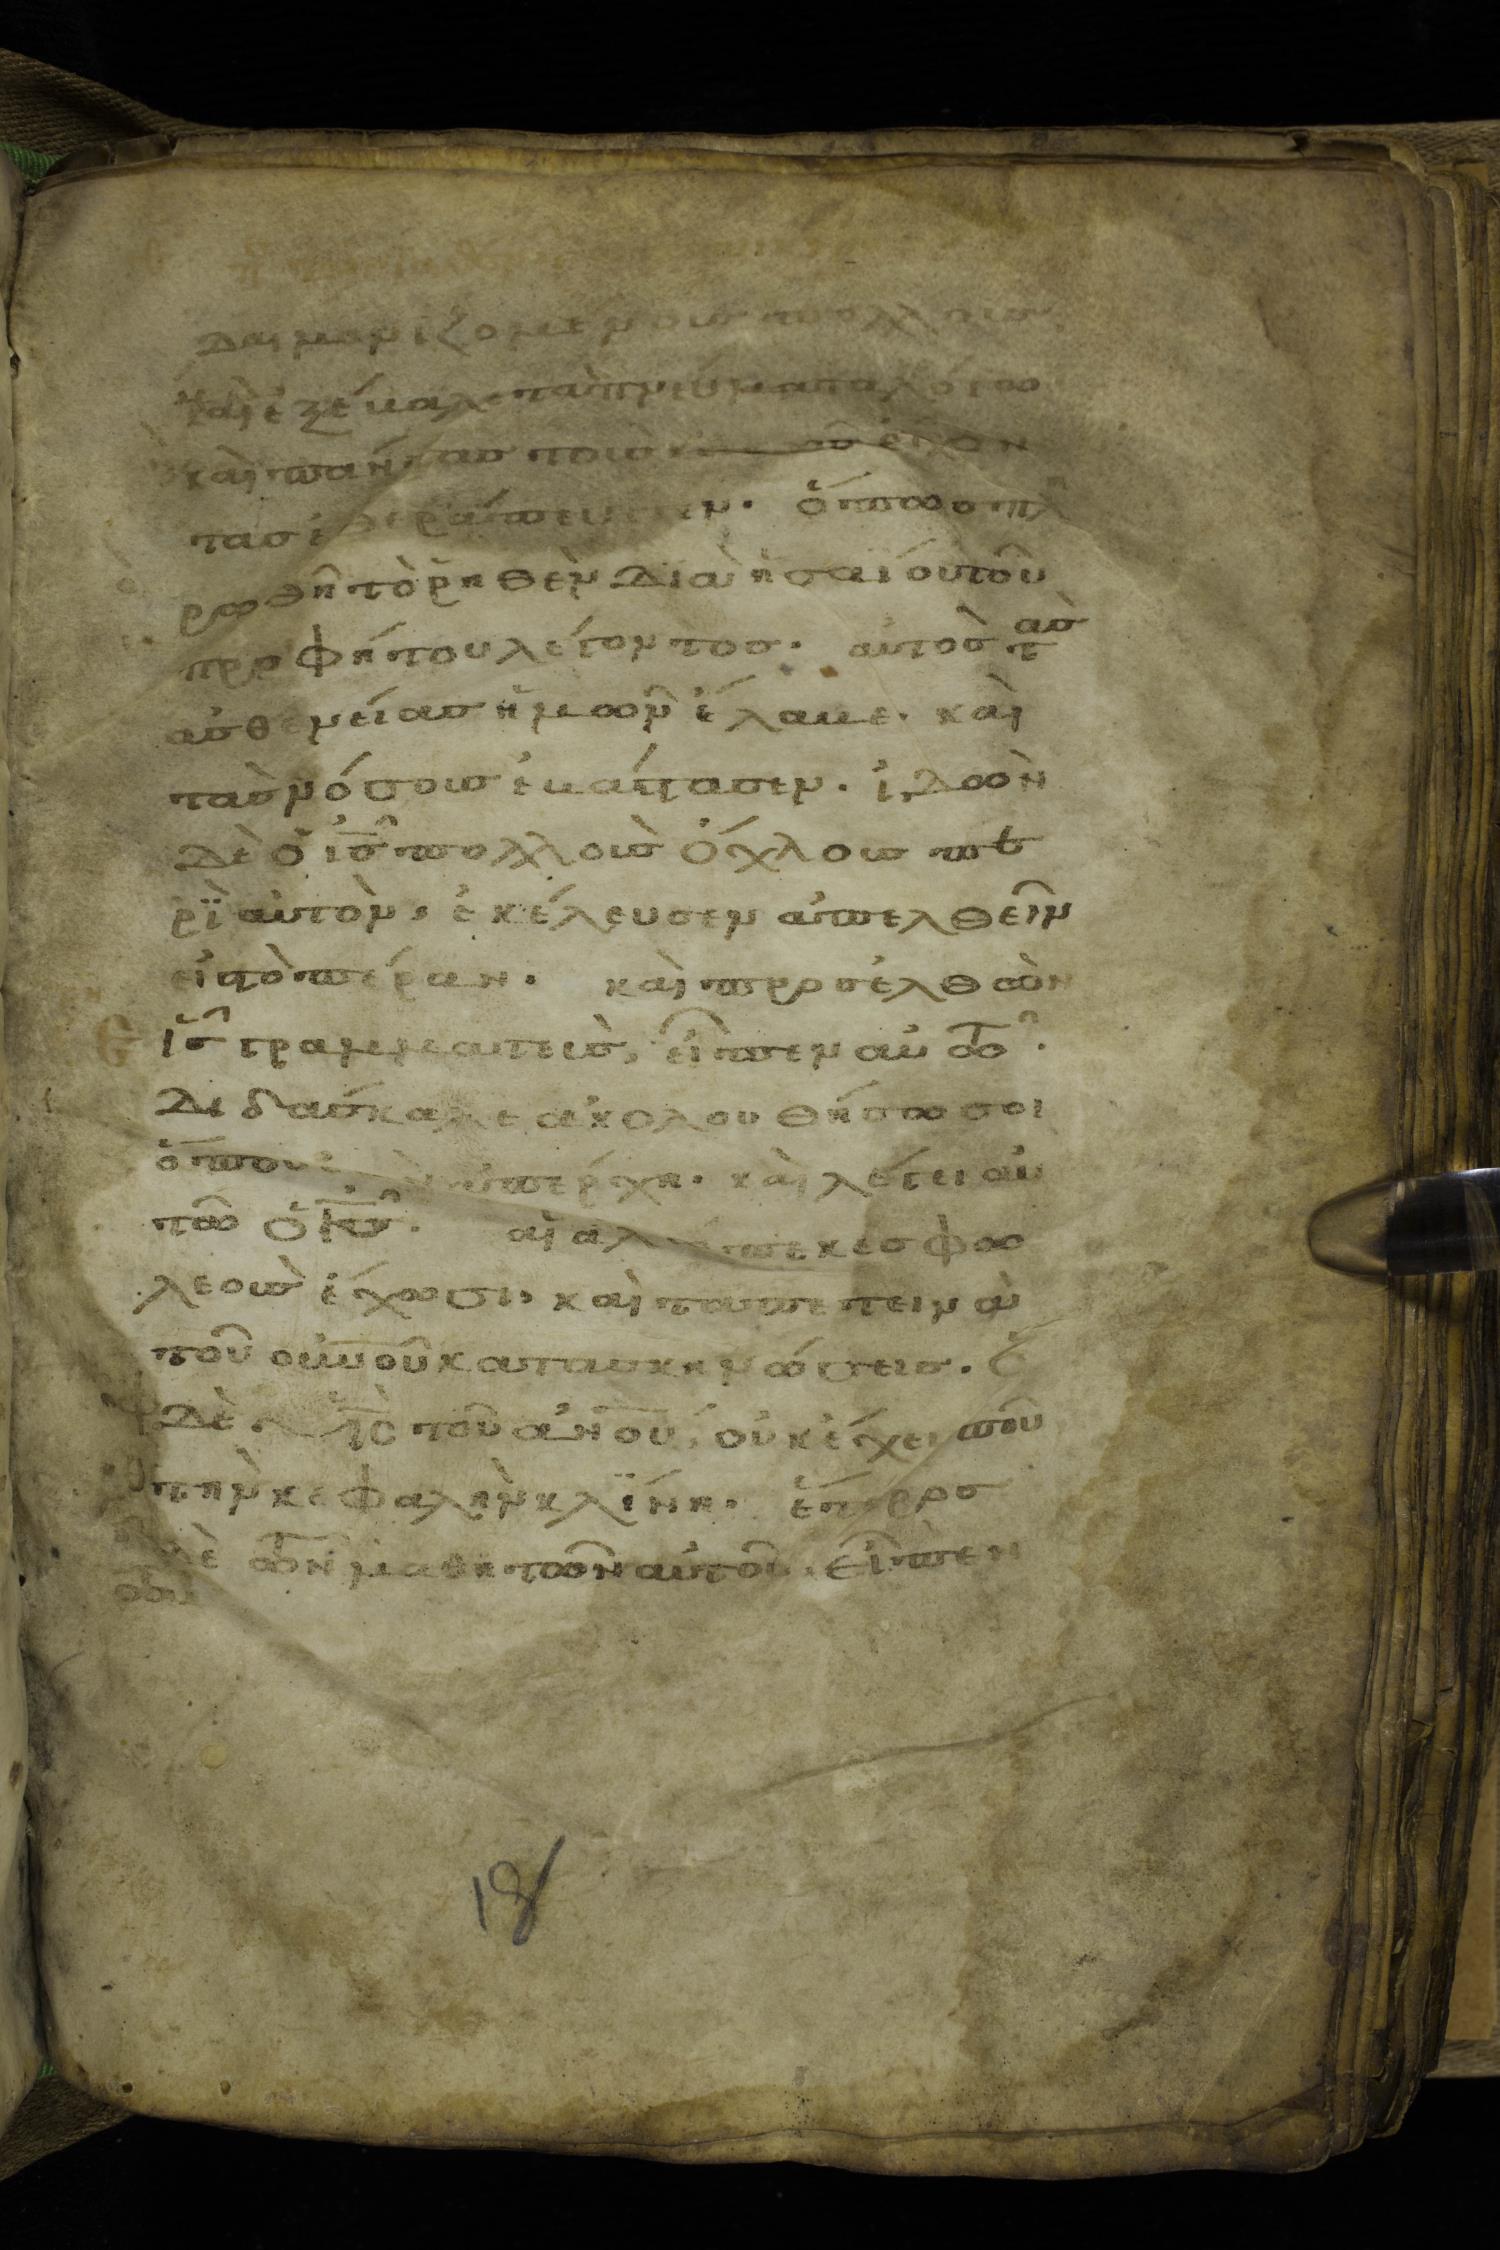 δαιμονιζομένους πολλοὺς
καὶ ἐξέβαλε τὰ πνεύματα λόγω
καὶ πάντας τοὺς κακῶς ἔχον
τας ἐθεράπευσεν. ὅπως πλη
ρωθῆ τὸ ῥηθὲν διὰ ἡσαΐου τοῦ
προφήτου λέγοντος. αὐτὸς τὰς
ἀσθενείας ἡμῶν ἔλαβε. καὶ
τὰς νόσους ἐβάστασεν. ἰδὼν
δὲ ὁ ις πολλοὺς ὄχλους πε
ρὶ αὐτὸν, ἐκέλευσεν ἀπελθεῖν
εἰς τὸ πέραν. καὶ προσελθὼν
εἷς γραμματεὺς, εἶπεν αὐτῶ.
διδάσκαλε ἀκολουθήσω σοι
ὅπου ἐὰν ἀπέρχη. καὶ λέγει αὐ
τῶ ὁ ις. αἱ ἀλώπεκες φω
λεοὺς ἔχουσι. καὶ τὰ πετεινὰ
τοῦ ουνου κατασκηνώσεις. ὁ
δὲ υς τοῦ ανου, οὐκ ἔχει ποῦ
τὴν κεφαλὴν κλίνη. ἕτερος
δὲ τῶν μαθητῶν αὐτοῦ, εἶπεν
18